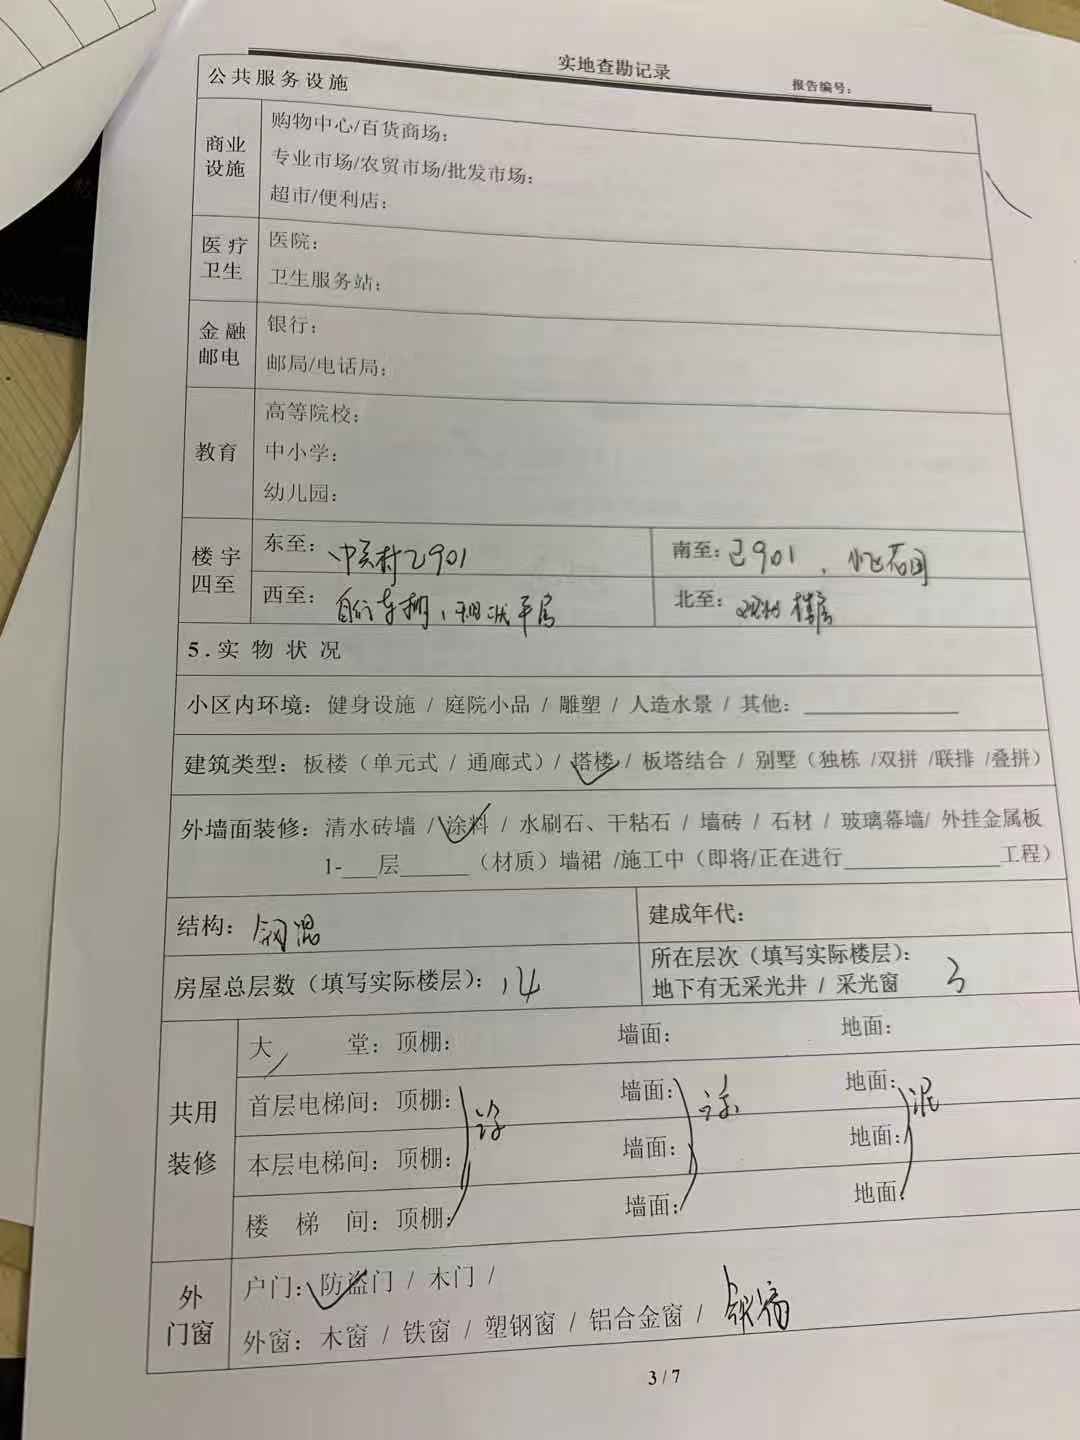 实地查勘记录
报告编号：
公共服务设施
商业设施
购物中心/百货商场：
专业市场/农贸市场/批发市场：
超市/便利店：
医疗卫生
医院：
卫生服务站：
金融邮电
银行：
邮局/电话局：
教育
高等院校：
中小学：
幼儿园：
楼宇四至
东至：中关村乙901
南至：已901，
西至：自行车棚、现状平房
北至：现状楼房
5.实物状况
小区内环境：健身设施 / 庭院小品 / 雕塑 / 人造水景 / 其他：
建筑类型：板楼（单元式 / 通廊式）/ 塔楼 / 板塔结合 / 别墅（独栋 /双拼 /联排 /叠拼）
外墙面装修：清水砖墙 / 涂料 / 水刷石、干粘石 / 墙砖 / 石材 / 玻璃幕墙/ 外挂金属板
1-___层______（材质）墙裙 /施工中（即将/正在进行______________工程）
结构：钢混
建成年代：
房屋总层数（填写实际楼层）：14
所在层次（填写实际楼层）：
地下有无采光井 / 采光窗 3
共用装修
大堂：顶棚： 墙面： 地面：
首层电梯间：顶棚： 墙面： 地面：
涂 涂 泥
本层电梯间：顶棚： 墙面： 地面：
楼梯间：顶棚： 墙面： 地面：
外门窗
户门：防盗门 / 木门 /
外窗：木窗 / 铁窗 / 塑钢窗 / 铝合金窗 /
3 / 7